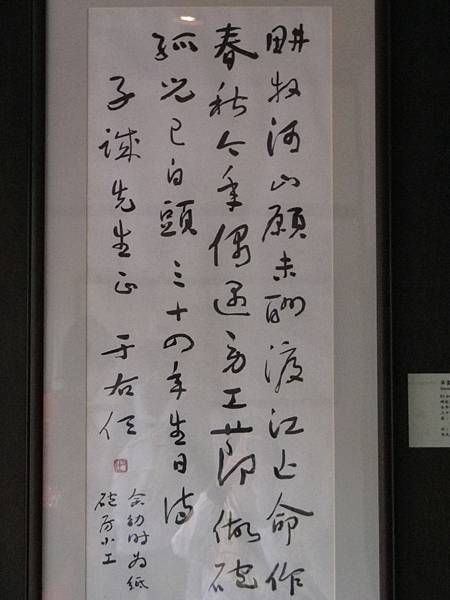 耕牧河山願未酬渡江亡命作
春秋今年偶遇勞工節做砲
孤兒已白頭 三十四年生日詩
子誠先生正 于右任
余幼时为紙
砲房小工